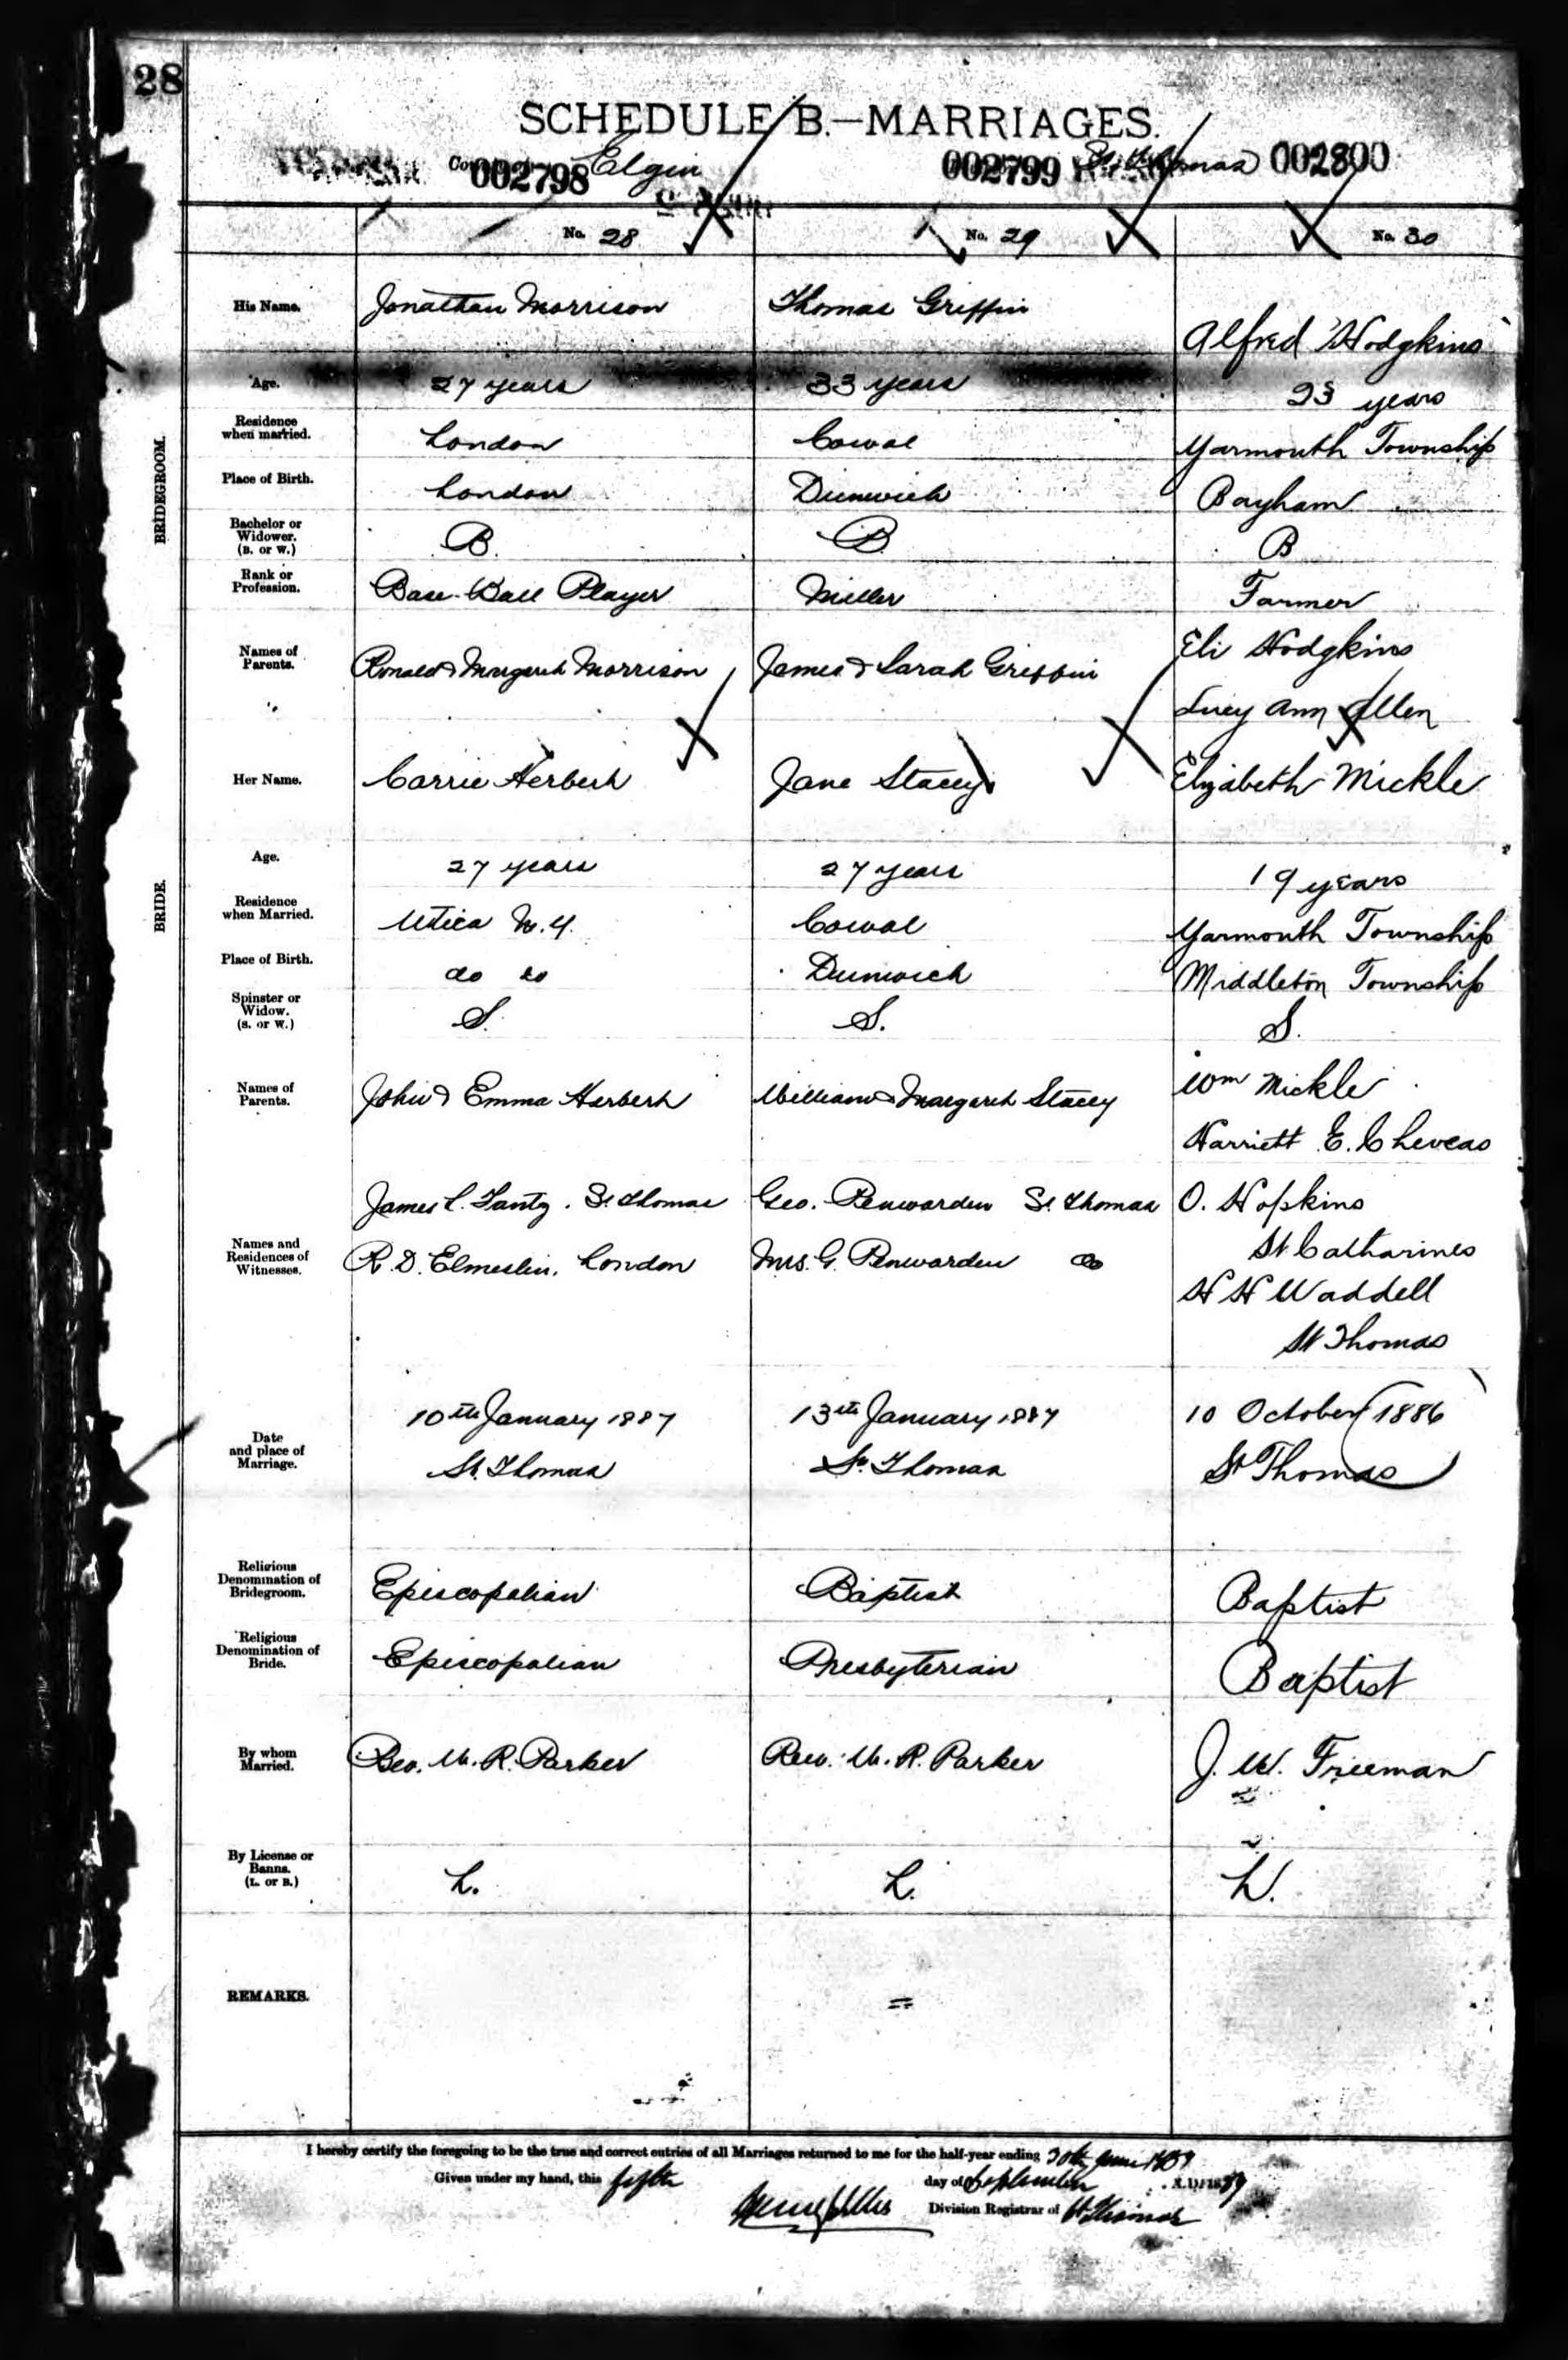 28
SCHEDULE B.—MARRIAGES.
Co 002798 Elgin 002799 St. Thomas 002800
No. 28 No. 29 No. 30
His Name. Jonathan Morrison Thomas Griffin Alfred Hodgkins
Age. 27 years 33 years 23 years
Residence when married. London Cowal Yarmouth Township
Place of Birth. London Dunwich Bayham
Bachelor or Widower. (B. or W.) B. B B
Rank or Profession. Base-Ball Player Miller Farmer
BRIDEGROOM.
Names of Parents. Ronald & Margaret Morrison James & Sarah Griffin Eli Hodgkins
Lucy Ann Allen
Her Name. Carrie Herbert Jane Stacey Elizabeth Mickle
Age. 27 years 27 years 19 years
Residence when Married. Utica N.Y. Cowal Yarmouth Township
BRIDE.
Place of Birth. do do Dunwich Middleton Township
Spinster or Widow. (S. or W.) S. S. S.
Names of Parents. John & Emma Herbert William & Margaret Stacey Wm Mickle
Harriett E. Cheveas
James L. Fantz. St. Thomas Geo. Penwarden St. Thomas O. Hopkins
Names and Residences of Witnesses. R. D. Elmeslin. London Mrs. G. Penwarden do St Catharines
H H Waddell
St Thomas
Date and place of Marriage. 10th January 1887 13th January 1887 10 October 1886
St. Thomas St. Thomas St Thomas
Religious Denomination of Bridegroom. Episcopalian Baptist Baptist
Religious Denomination of Bride. Episcopalian Presbyterian Baptist
By whom Married. Rev. W. R. Parker Rev. W. R. Parker J. W. Freeman
By License or Banns. (L. or B.) L. L. L.
REMARKS. =
I hereby certify the foregoing to be the true and correct entries of all Marriages returned to me for the half-year ending 30th June 1887
Given under my hand, this fifth day of September A.D. 1887
Division Registrar of St Thomas